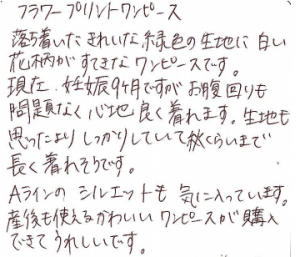 フラワープリントワンピース
落ち着いたきれいな緑色の生地に白い
花柄がすてきなワンピースです。
現在、妊娠9ヶ月ですがお腹回りも
問題なく心地良く着れます。生地も
思ったよりしっかりしていて秋くらいまで
長く着れそうです。
Aラインのシルエットも気に入っています。
産後も使えるかわいいワンピースが購入
できてうれしいです。